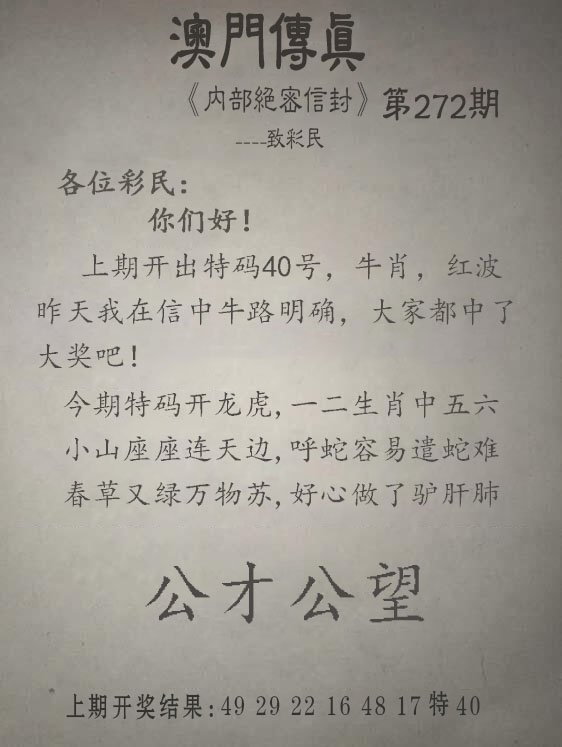 澳門傳眞
《内部絕密信封》第272期
----致彩民
各位彩民：
你们好！
上期开出特码40号，牛肖，红波
昨天我在信中牛路明确，大家都中了
大奖吧！
今期特码开龙虎,一二生肖中五六
小山座座连天边,呼蛇容易遣蛇难
春草又绿万物苏,好心做了驴肝肺
公才公望
上期开奖结果:49 29 22 16 48 17特40